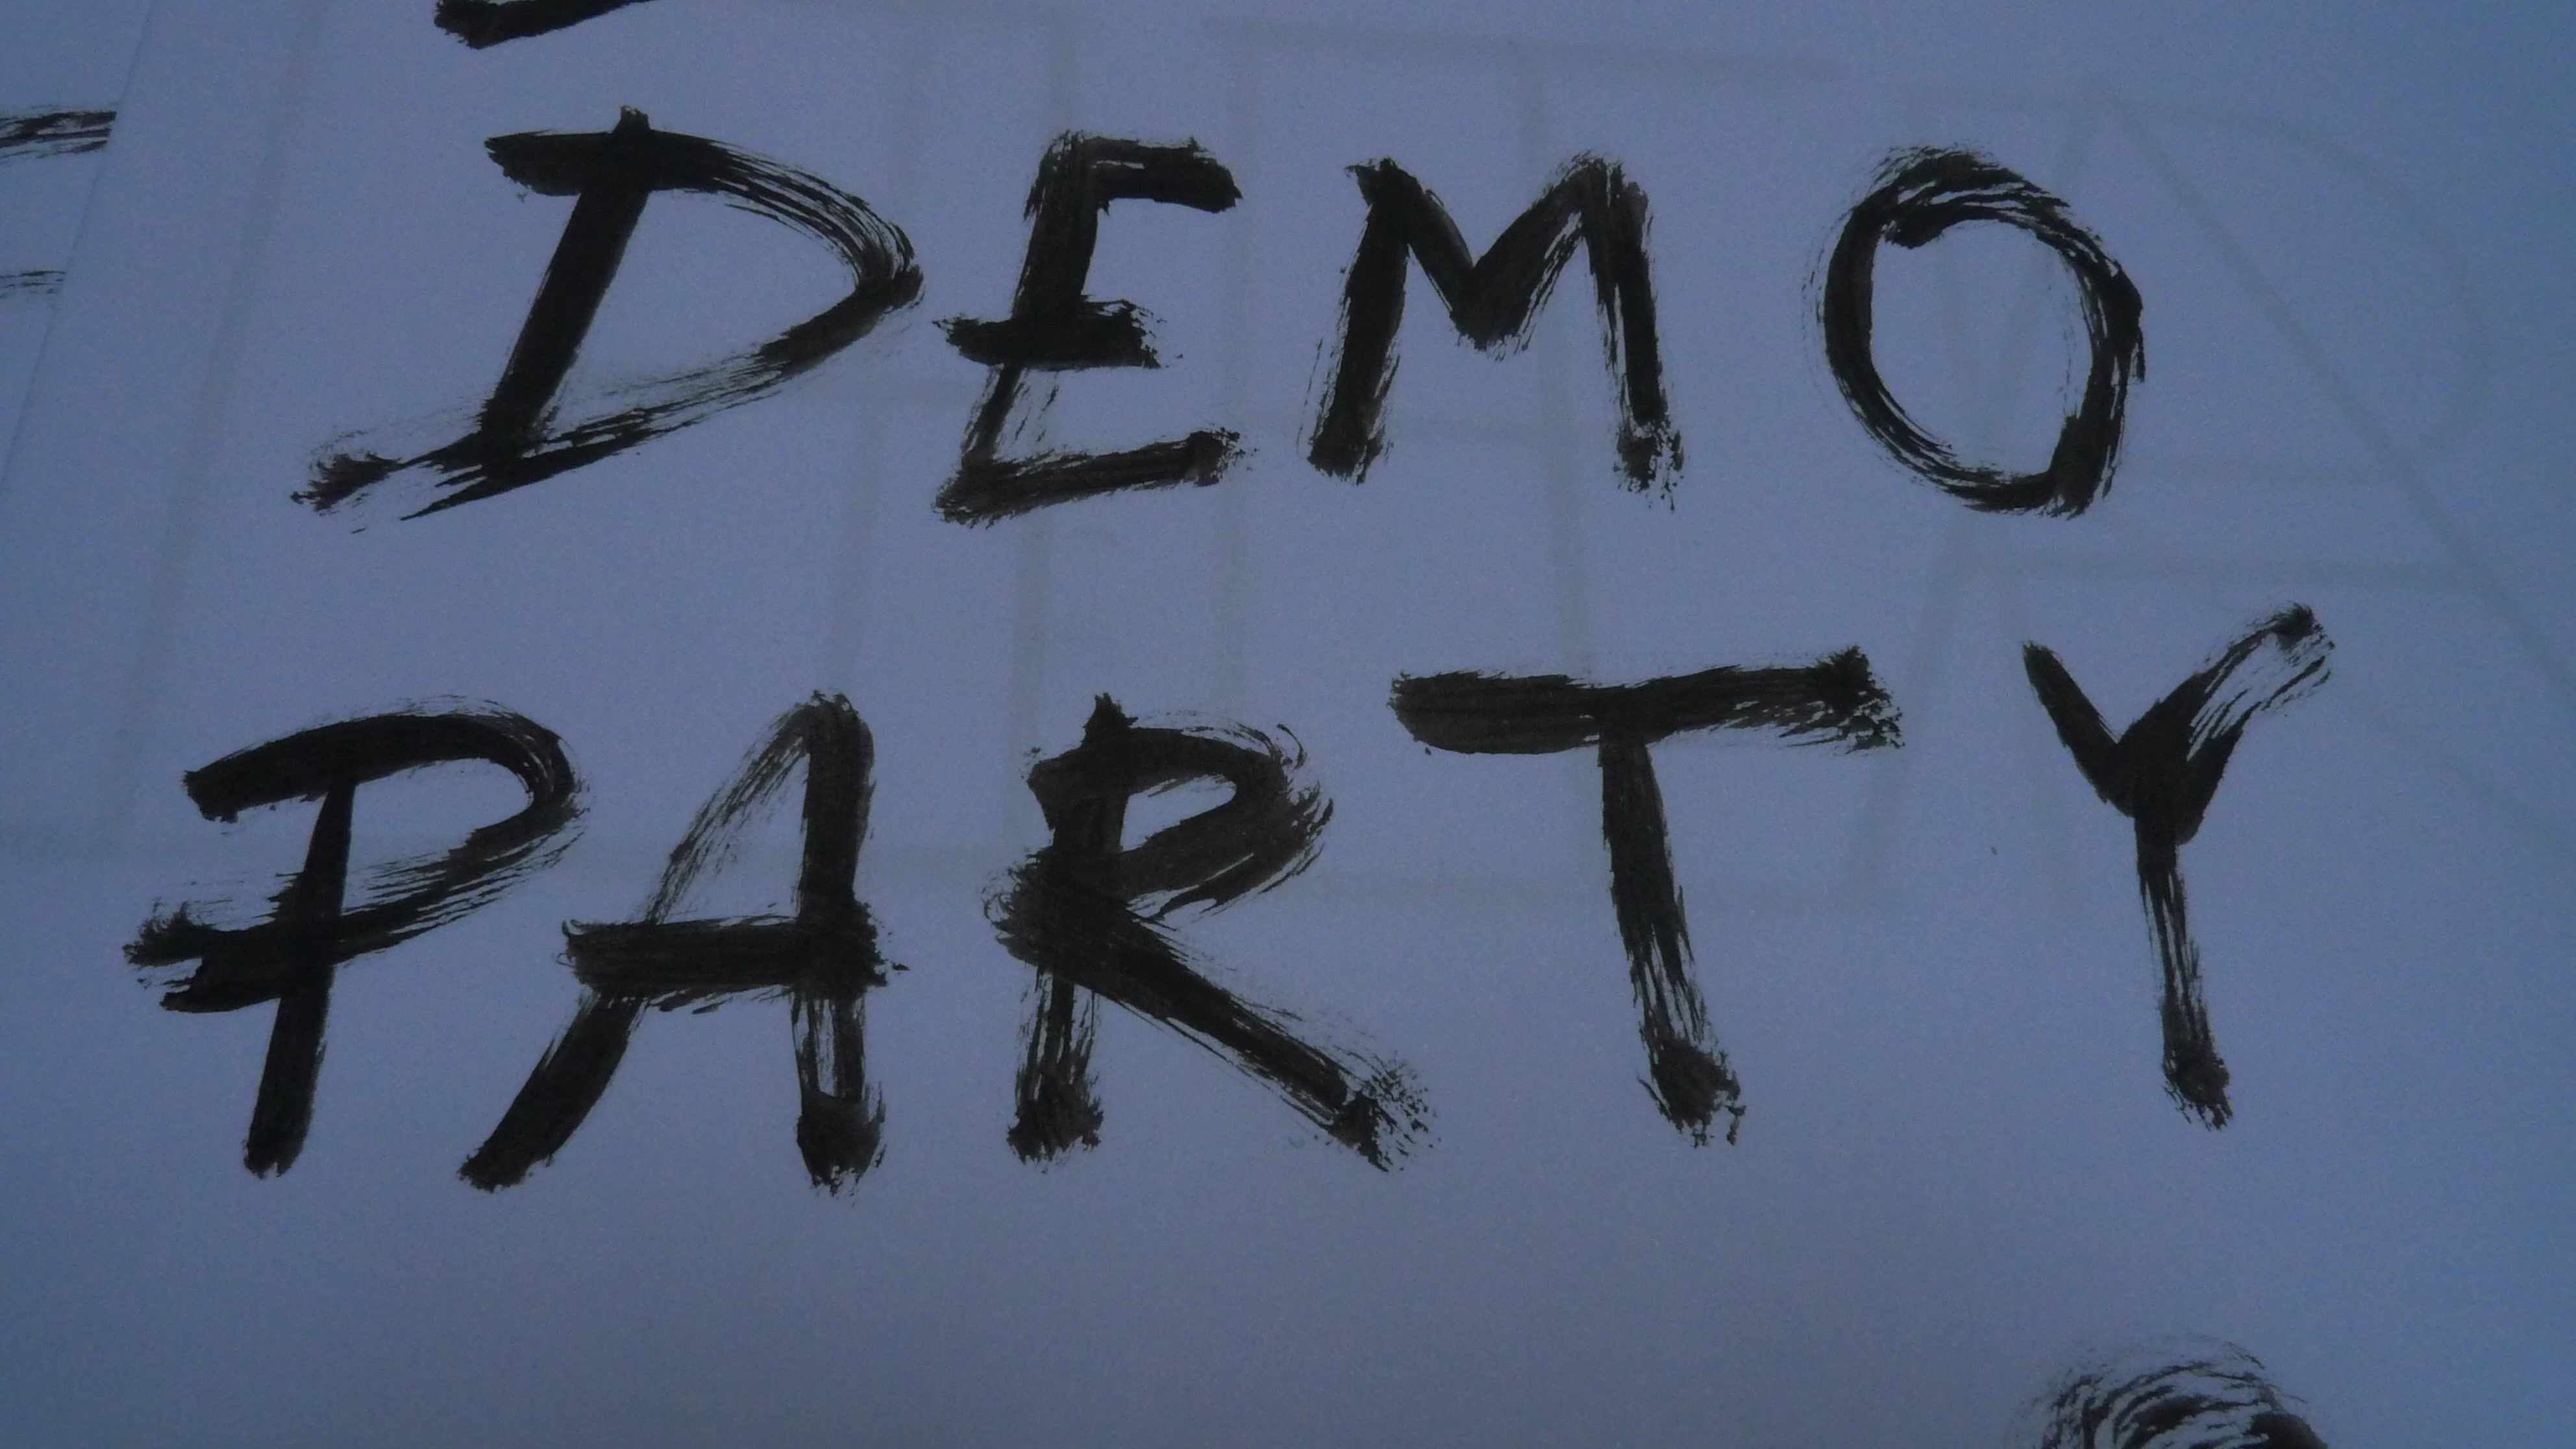 DEMO
PARTY